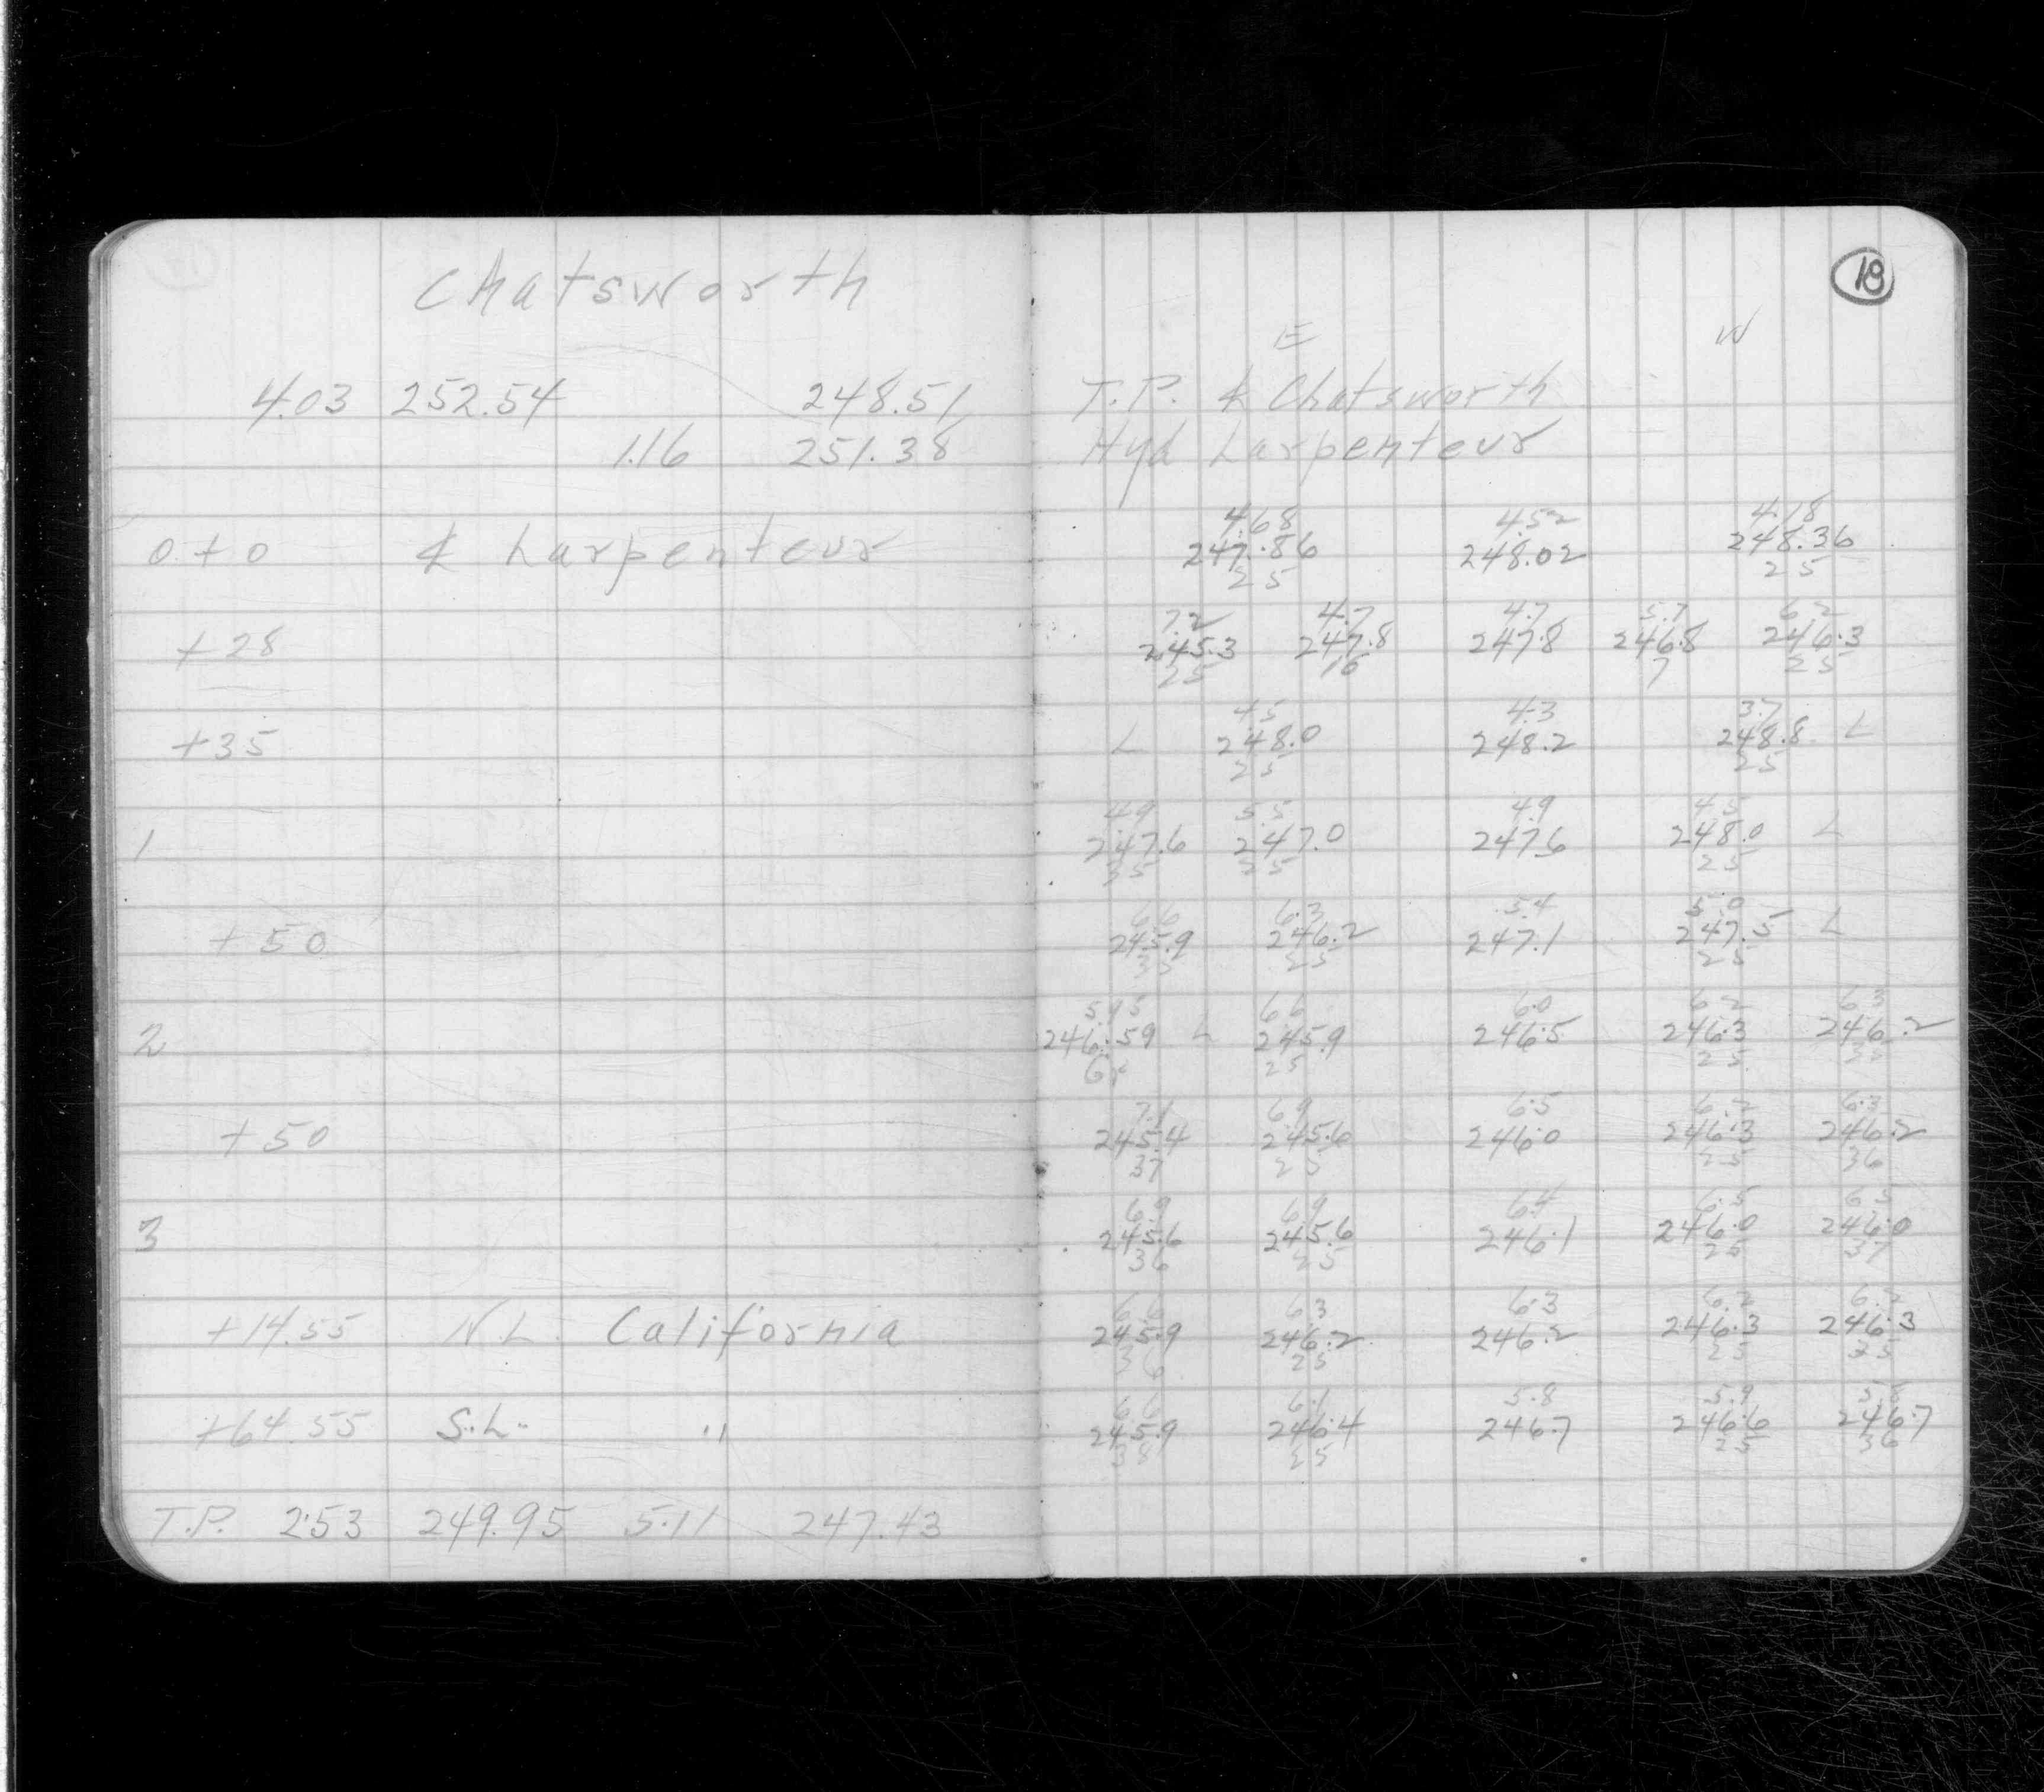 18
Chatsworth
E W
4.03 252.54 248.51 T.P. ℄ Chatsworth
1.16 251.38 Hyd Larpenteur
4.68 4.52 4.18
0+0 ℄ Larpenteur 247.86 248.02 248.36
25 25
7.2 4.7 4.7 5.7 6.2
+28 245.3 247.8 247.8 246.8 246.3
25 16 7 25
4.5 4.3 3.7
+35 L 248.0 248.2 248.8 L
25 25
4.9 5.5 4.9 4.5
1 247.6 247.0 247.6 248.0 L
35 25 25
6.6 6.3 5.4 5.0
+50 245.9 246.2 247.1 247.5 L
35 25 25
5.95 6.6 6.0 6.2 6.3
2 246.59 L 245.9 246.5 246.3 246.2
25 25
7.1 6.9 6.5 6.2 6.3
+50 245.4 245.6 246.0 246.3 246.2
37 25 25 36
6.9 6.9 6.4 6.5 6.5
3 245.6 245.6 246.1 246.0 246.0
36 25 25 37
6.6 6.3 6.3 6.2 6.2
+14.55 N.L. California 245.9 246.2 246.2 246.3 246.3
36 25 25 35
6.6 6.1 5.8 5.9 5.8
+64.55 S.L. " 245.9 246.4 246.7 246.6 246.7
38 25 25 36
T.P. 2.53 249.95 5.11 247.43